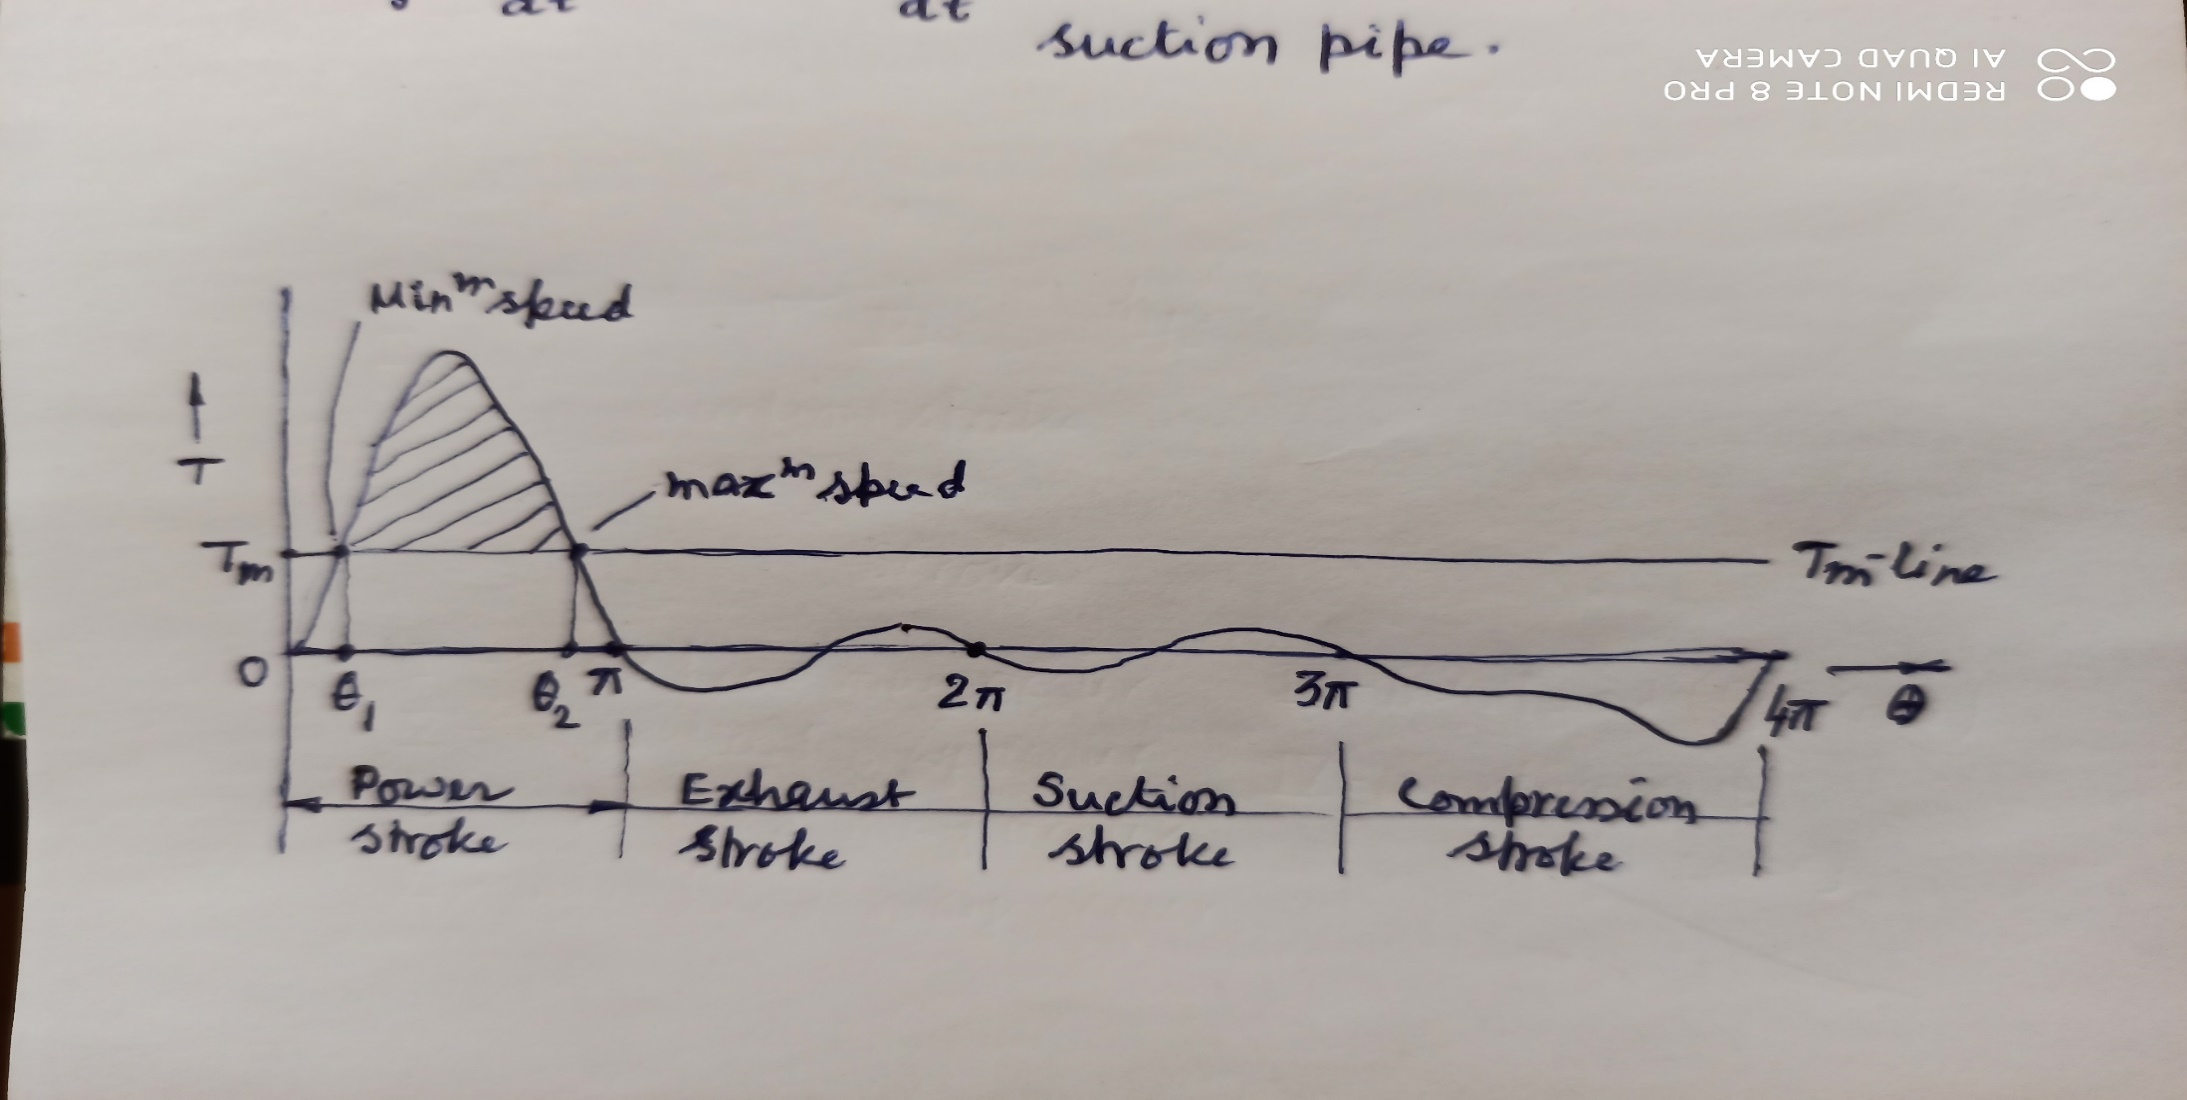 dt dt
suction pipe.
REDMI NOTE 8 PRO
AI QUAD CAMERA
Minᵐ speed
T
maxᵐ speed
Tm
Tm-line
0 θ₁ θ₂ π 2π 3π 4π θ
Power stroke
Exhaust stroke
Suction stroke
Compression stroke